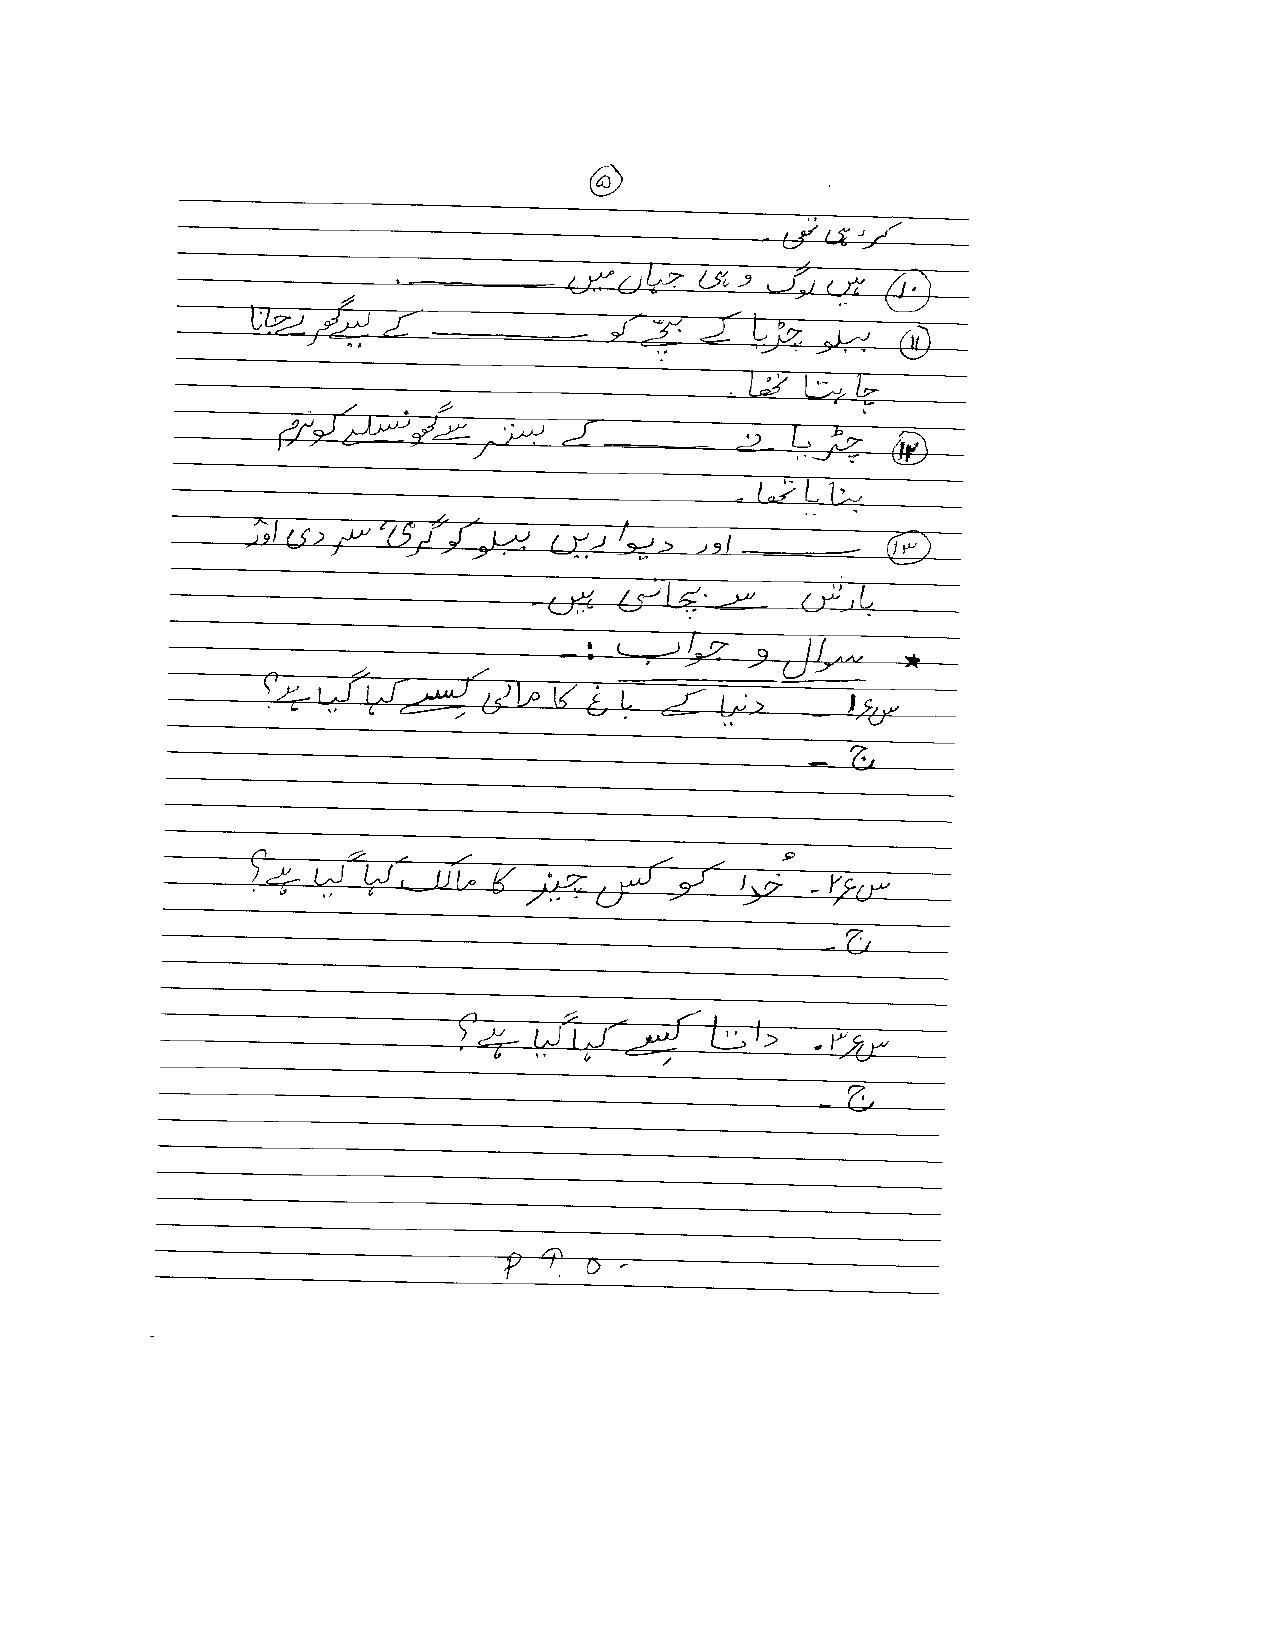 ۵
کر رہی تھی ۔
۱۰ ہیں لوگ وہی جہاں میں ــــــــــ ۔
۱۱ ببلو چڑیا کے بچّے کو ــــــــــ کے لیے گھر لے جانا
چاہتا تھا ۔
۱۲ چڑیا نے ــــــــــ کے بستر سے گھونسلے کو نرم
بنایا تھا ۔
۱۳ ــــــــــ اور دیواریں ببلو کو گرمی، سردی اور
بارش سے بچاتی ہیں ۔
★ سوال و جواب :۔
س۶۱ ۔ دنیا کے باغ کا مالی کِسے کہا گیا ہے؟
ج ۔
س۶۲ ۔ خُدا کو کس چیز کا مالک کہا گیا ہے؟
ج ۔
س۶۳ ۔ داتا کِسے کہا گیا ہے؟
ج ۔